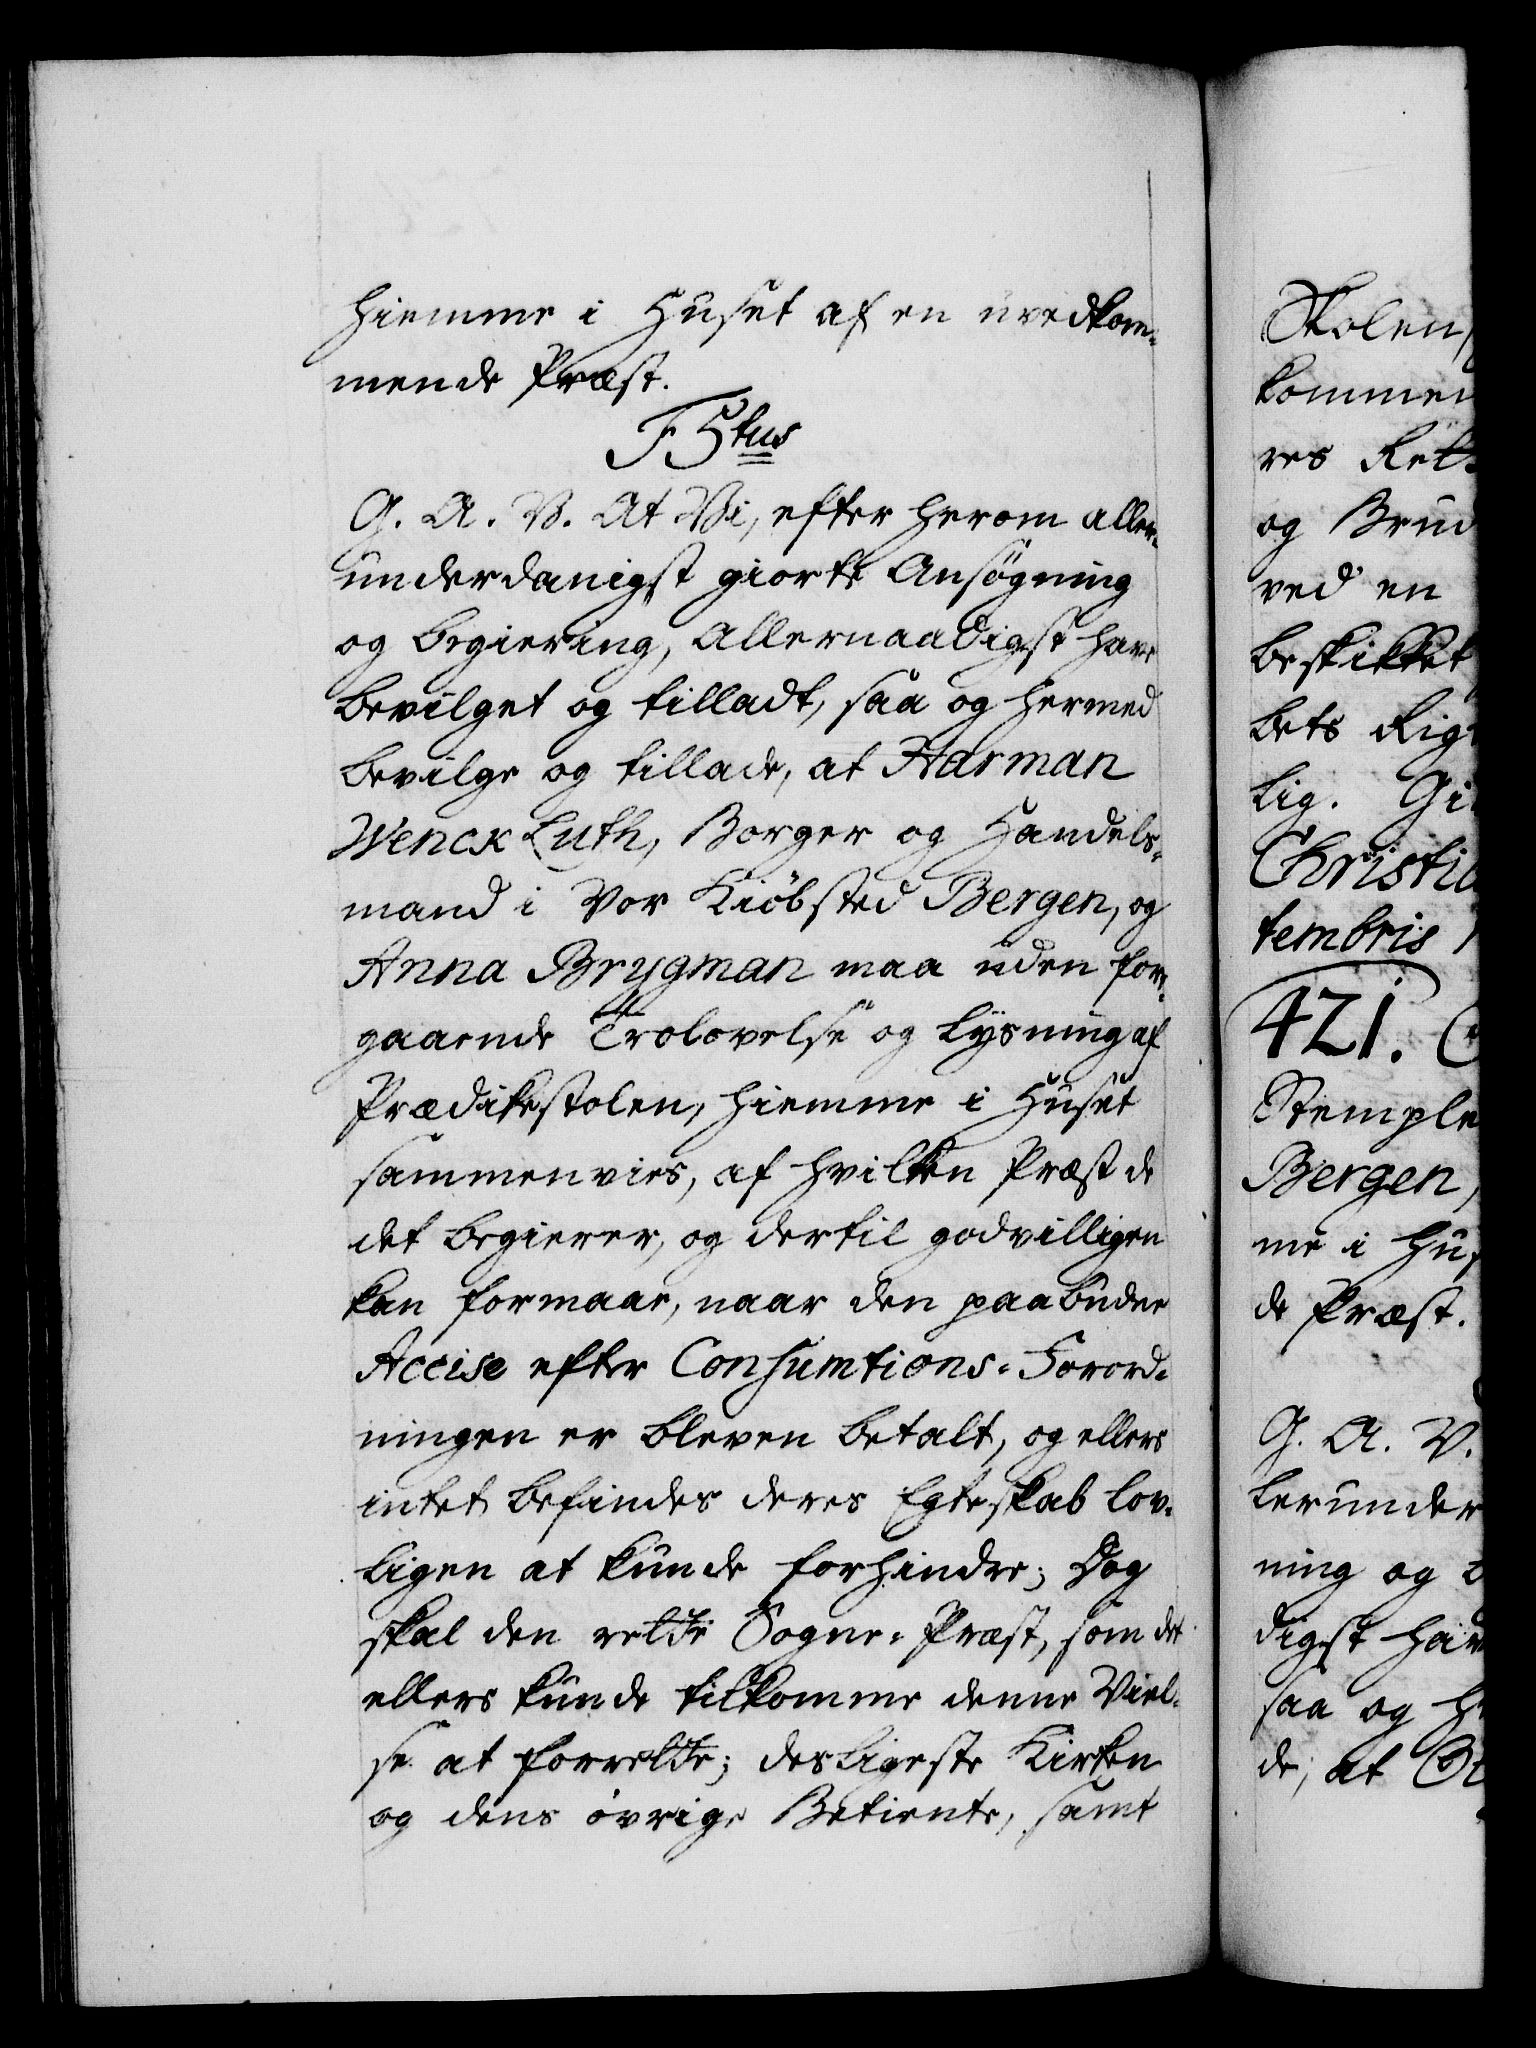 hiemme i Huset af en uvedkom-
mende Præst.
F 5tus
G. A. V. At Vi, efter herom aller-
underdanigst giorte Ansøgning
og begiering, Allernaadigst have
bevilget og tilladt, saa og hermed
bevilge og tillade, at Harman
Wenck Luth, Borger og Handels-
mand i Vor Kiøbsted Bergen, og
Anna Brygman maa uden for-
gaaende Trolovelse og Lysning af
Prædikestolen, hiemme i Huset
sammenvies, af hvilken Præst de
det begierer, og dertil godvilligen
kan formaae, naar den paabudne
Accise efter Consumtions-Forord-
ningen er bleven betalt, og ellers
intet befindes deres Egteskab lov-
ligen at kunde forhindre; Dog
skal den rette Sogne-Præst, som det
ellers kunde tilkomme denne Viel-
se at forrette; desligeste Kirken
og dens øvrige Betiente, samt
Skolen,
kommen
res Rett
og Brud
ved en
beskikket
bets Rig
lig. Gi
Christia
tembris
421.
Stemple
Bergen,
me i Hus
de Præst.
G. A. V.
lerunder
ning og b
digst hav
saa og he
de, at